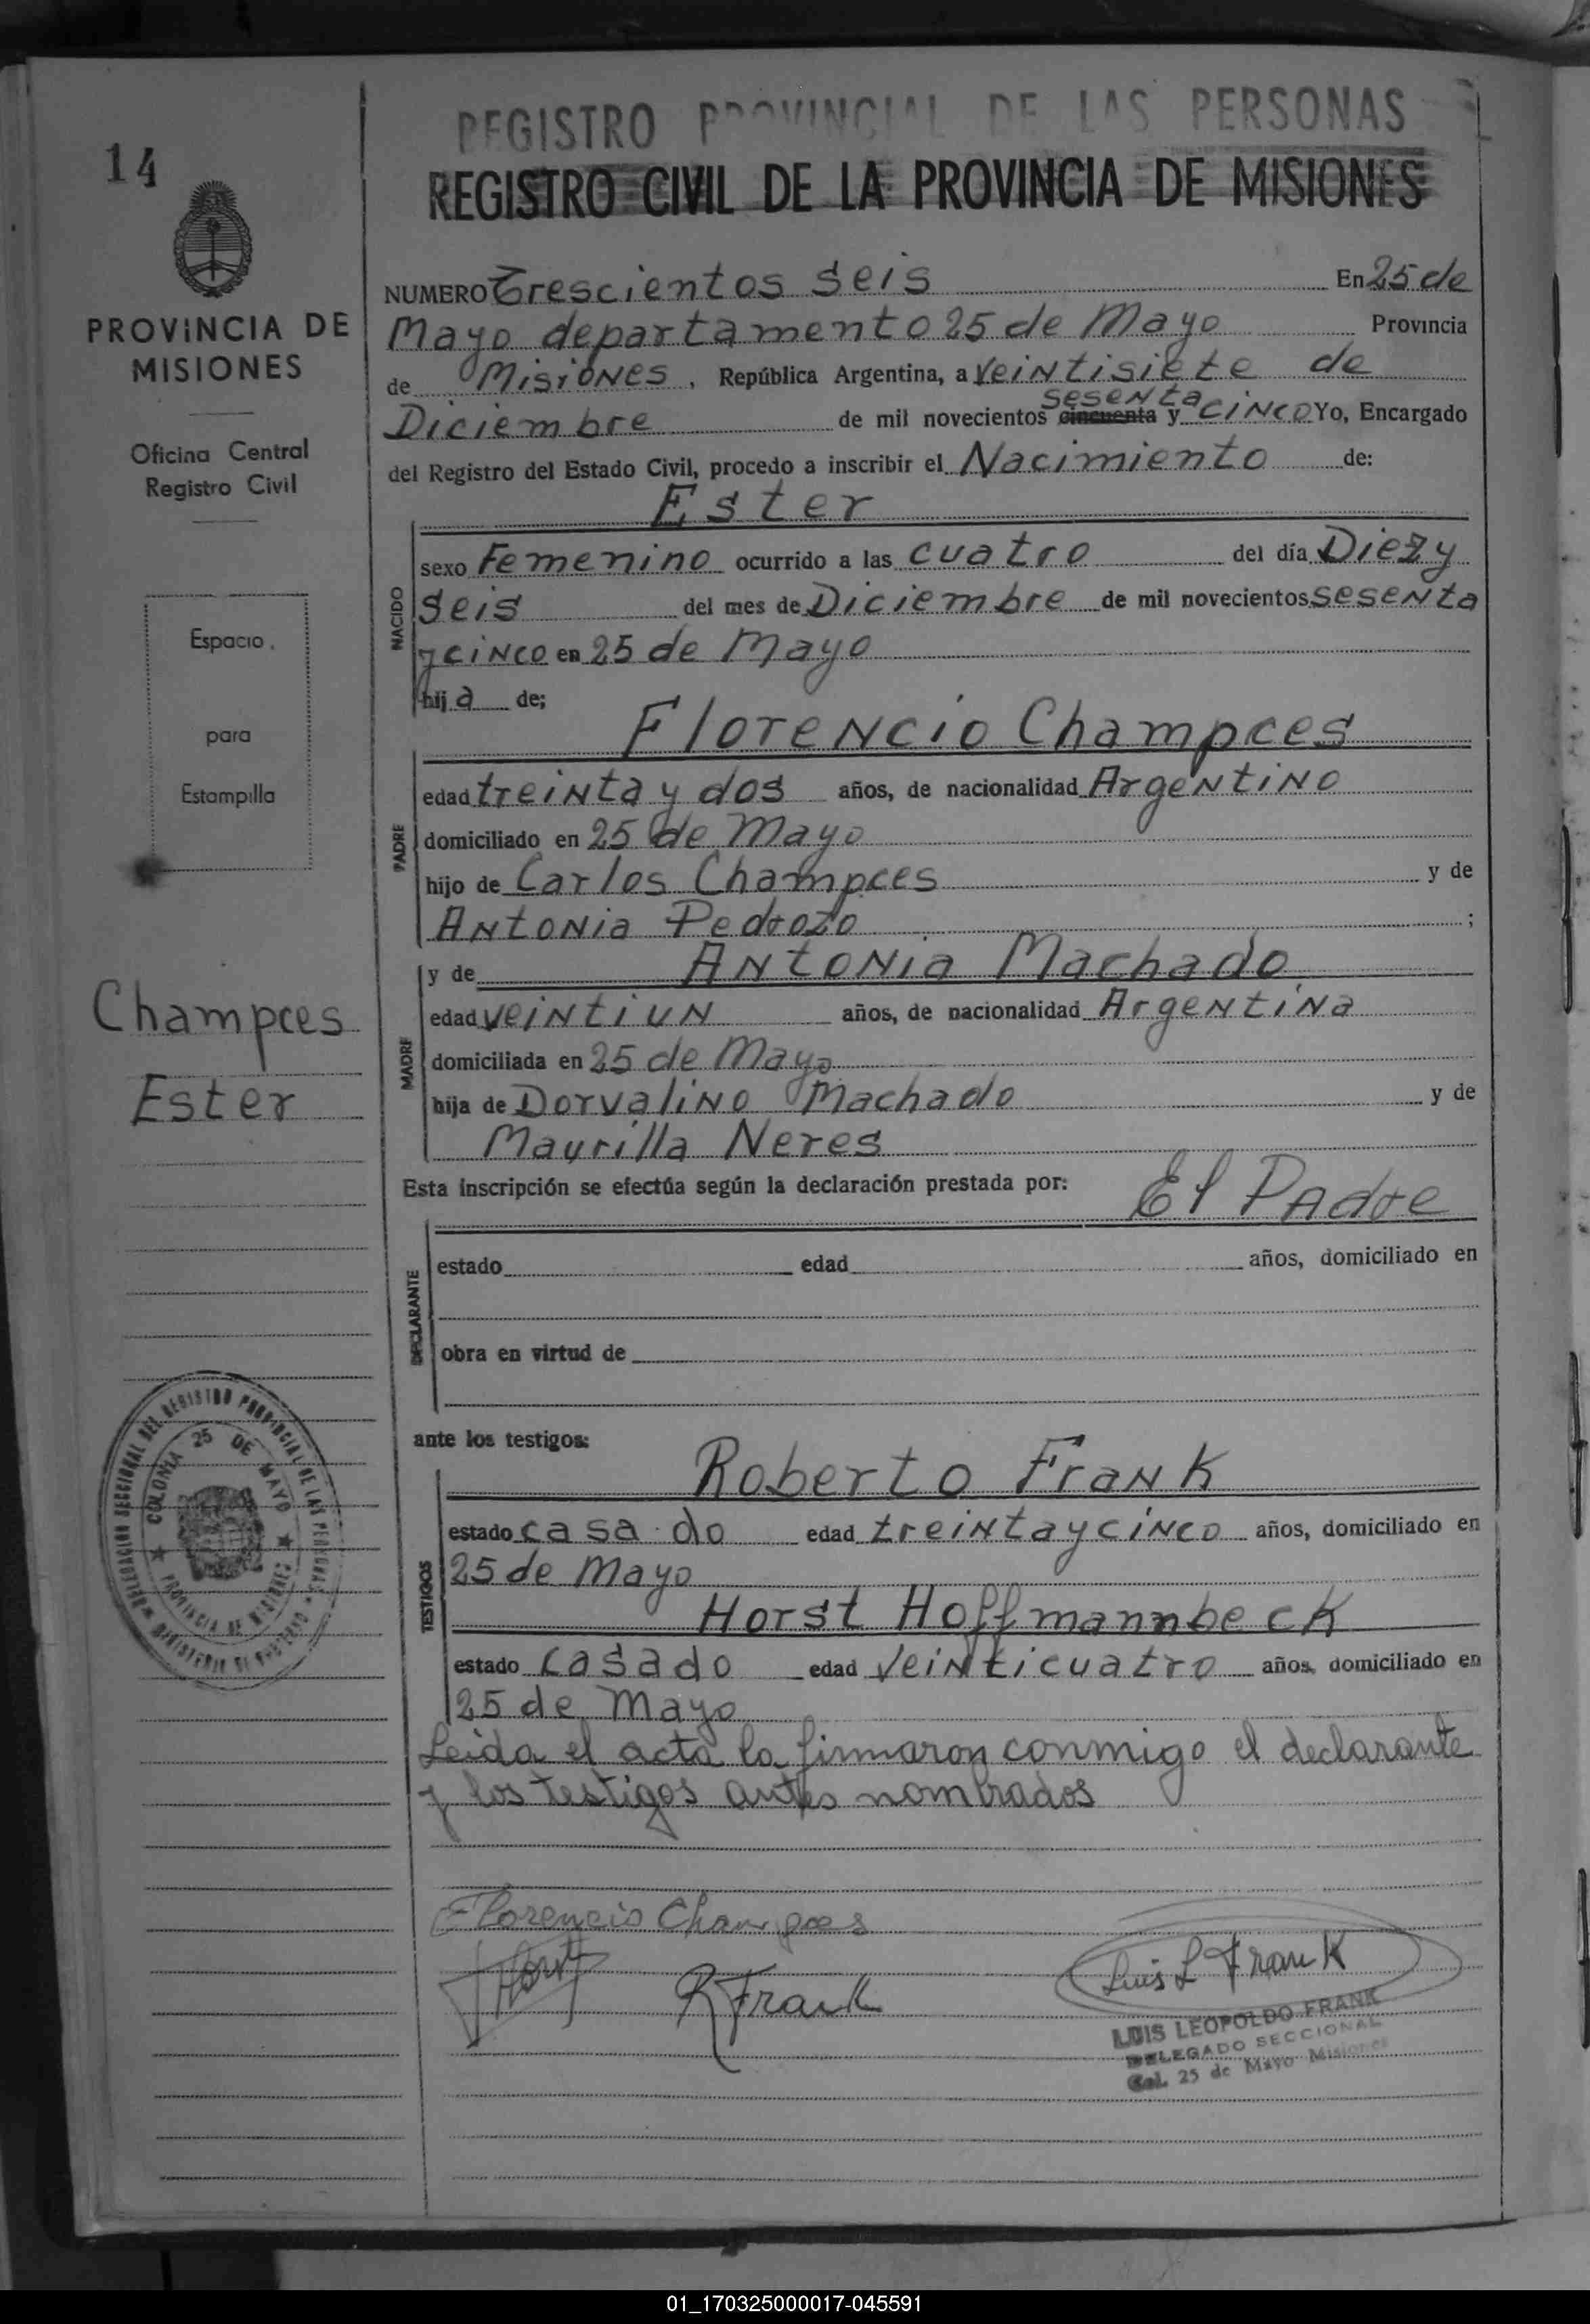 14
PROVINCIA DE
MISIONES
Oficina Central
Registro Civil
Espacio
para
Estampilla
Champces
Ester
DELEGACION SECCIONAL DEL REGISTRO PROVINCIAL DE LAS PERSONAS
COLONIA 25 DE MAYO
PROVINCIA DE MISIONES
REGISTRO PROVINCIAL DE LAS PERSONAS
REGISTRO CIVIL DE LA PROVINCIA DE MISIONES
NUMERO Trescientos seis En 25 de
Mayo departamento 25 de Mayo Provincia
de Misiones, República Argentina, a Veintisiete de
sesenta
Diciembre de mil novecientos cincuenta y cinco Yo, Encargado
del Registro del Estado Civil, procedo a inscribir el Nacimiento de:
Ester
NACIDO
sexo Femenino ocurrido a las cuatro del día Diez y
seis del mes de Diciembre de mil novecientos sesenta
y cinco en 25 de Mayo
hija de;
Florencio Champces
PADRE
edad treinta y dos años, de nacionalidad Argentino
domiciliado en 25 de Mayo
hijo de Carlos Champces y de
Antonia Pedrozo ;
y de Antonia Machado
MADRE
edad veintiun años, de nacionalidad Argentina
domiciliada en 25 de Mayo
hija de Dorvalino Machado y de
Maurilla Neres
Esta inscripción se efectúa según la declaración prestada por: El Padre
DECLARANTE
estado edad años, domiciliado en
obra en virtud de
ante los testigos:
Roberto Frank
TESTIGOS
estado casado edad treinta y cinco años, domiciliado en
25 de Mayo
Horst Hoffmannbeck
estado casado edad veinticuatro años, domiciliado en
25 de Mayo
Leida el acta la firmaron conmigo el declarante
y los testigos antes nombrados
Florencio Champces
Horst
R Frank
Luis L Frank
LUIS LEOPOLDO FRANK
DELEGADO SECCIONAL
Col. 25 de Mayo Misiones
01_170325000017-045591